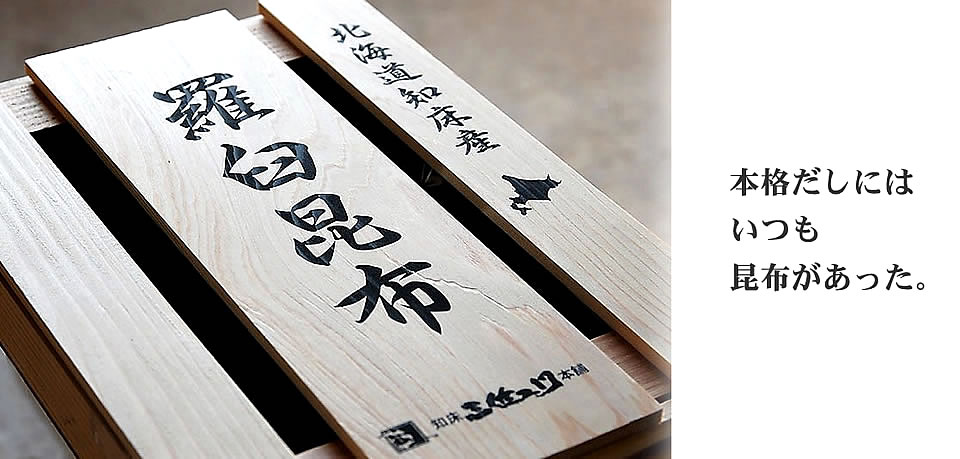 北海道知床産
羅臼昆布
知床
本舗
本格だしには
いつも
昆布があった。